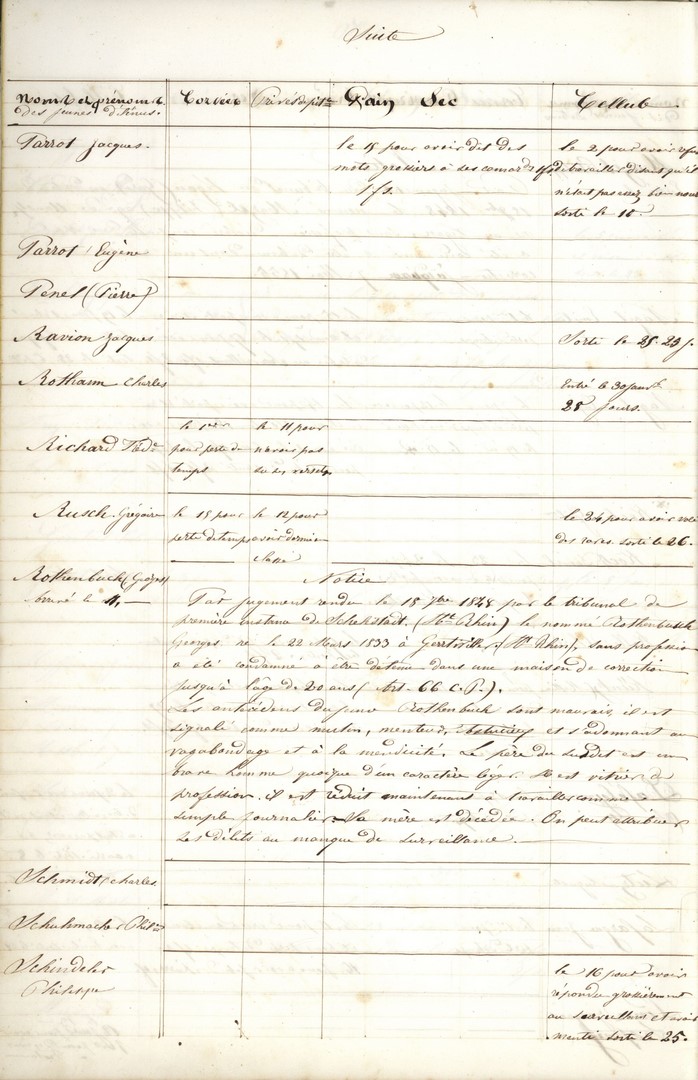 Suite
Noms et prénoms des jeunes détenus. Corvée Privés de pit.ce Pain Sec Cellule
Parrot Jacques.
le 15 pour avoir dit des
mots grossiers à ses camar.des
1 f s.
le 2 pour avoir refusé
de travailler disant qu'il
n'était pas assez bien nourri
sorti le 10.
Parrot Eugène
Penel (Pierre)
Ravion Jacques
Sorti le 25. 23 j.
Rothann Charles
Entré le 30 janv.
28 jours.
Richard
le 1er
pour perte de
temps
le 11 pour
n'avoir pas
su ses versets
Rusch Grégoire
le 15 pour
perte de temps
le 12 pour
avoir dormi en
classe
le 24 pour avoir volé
des raves. sorti le 26.
Rothenbuck (Georges)
le 4,
Notice
Par jugement rendu le 18 7bre 1848 par le tribunal de
première instance de Schelestadt. (Bas Rhin) le nommé Rothenbuck
Georges né le 22 Mars 1833 à (Bas Rhin), sans profession
a été condamné à être détenu dans une maison de correction
jusqu'à l'âge de 20 ans (Art. 66 C. P.).
Les antécédens du jeune Rothenbuck sont mauvais, il est
signalé comme mutin, menteur, astucieux et s'adonnant au
vagabondage et à la mendicité. Le père du susdit est un
brave homme quoique d'un caractère léger. Il est vitrier de
profession. il est réduit maintenant à travailler comme
simple journalier. Sa mère est décédée. On peut attribuer
ses délits au manque de surveillance.
Schmidt Charles.
Schuhmacher Philippe
Schindeler
Philippe
le 16 pour avoir
répondu grossièrement
au surveillant et avoir
menti sorti le 25.